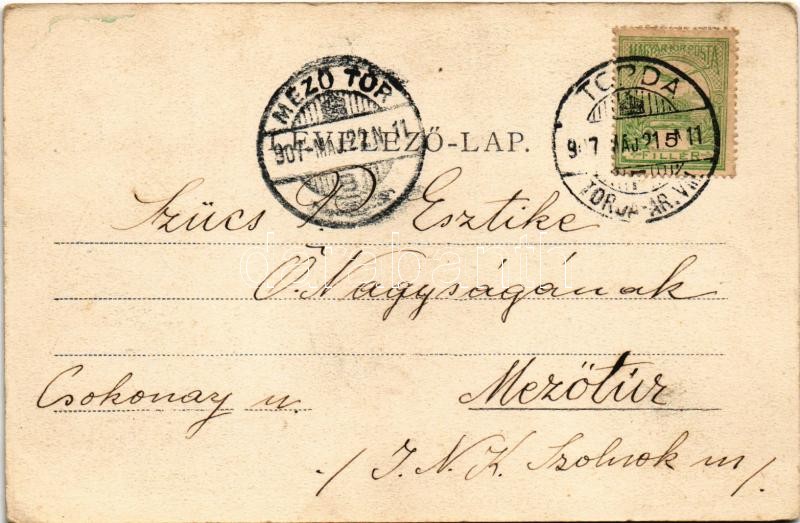 MAGYAR KIR. POSTA
5
FILLÉR
TORDA
907 MÁJ. 21 N 11
TORDA-AR. VM.
MEZŐ TÚR
907-MÁJ. 22. N. 11
LEVELEZŐ-LAP.
Szücs P. Esztike
Ő Nagyságának
Csokonay u. Mezőtúr
/ J. N. K. Szolnok m /.
darabanth